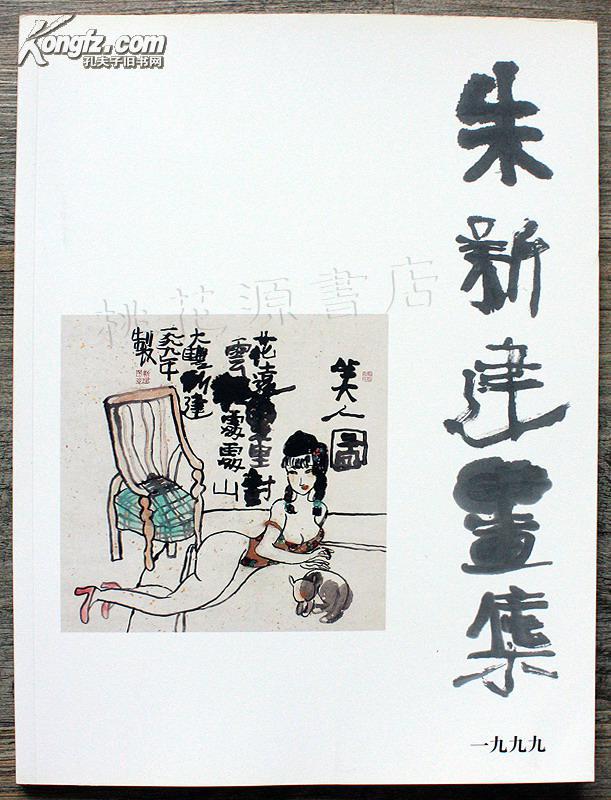 Kongfz.com
孔夫子旧书网
朱新建畫集
一九九九
桃花源書店
美人圖
花遠重重封
雲
處處山
大豐新建
一九九八年
製